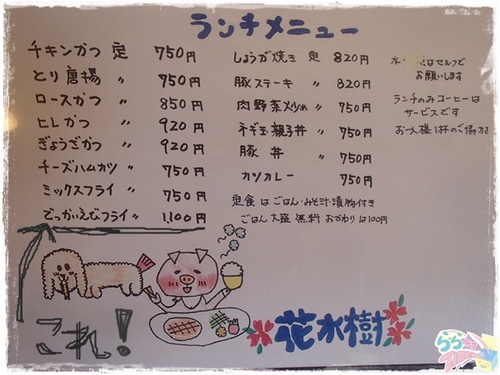 ランチメニュー
チキンかつ 定 750円
とり唐揚 〃 750円
ロースかつ 〃 850円
ヒレかつ 〃 920円
ぎょうざかつ 〃 920円
チーズハムカツ 〃 750円
ミックスフライ 〃 750円
でっかいえびフライ 〃 1,100円
しょうが焼き 定 820円
豚ステーキ 〃 820円
肉野菜炒め 〃 750円
ネギ玉親子丼 〃 750円
豚丼 〃 750円
カツカレー 750円
定食はごはん・みそ汁・漬物付き
ごはん大盛無料 おかわりは100円
水・はセルフで
お願いします
ランチのみコーヒーは
サービスです
お一人様1杯のご協力
これ!
花水樹